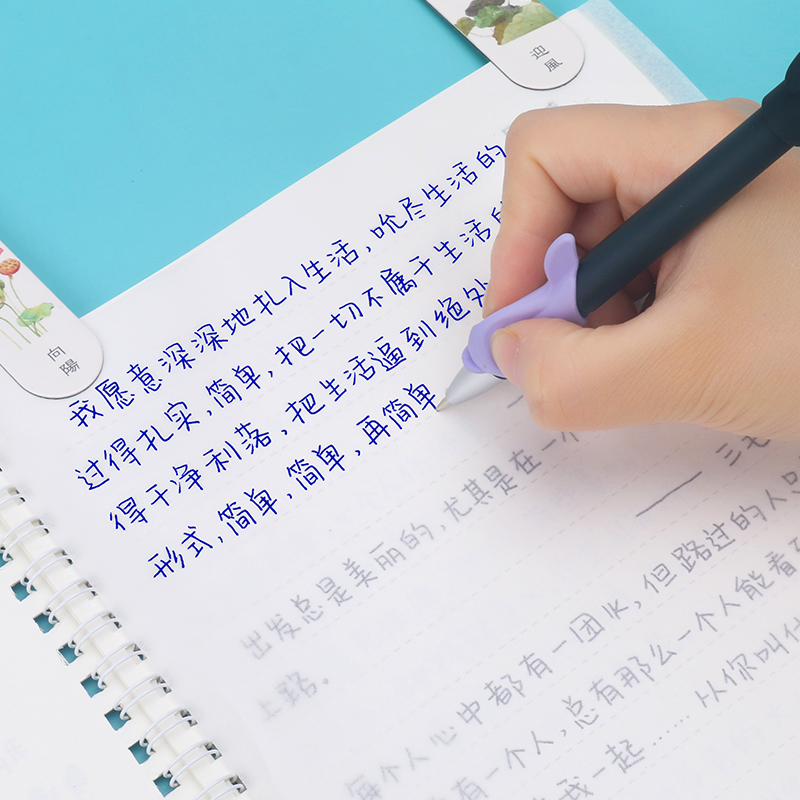 迎風
向陽
我愿意深深地扎入生活,吮尽生活的
过得扎实,简单,把一切不属于生活的
得干净利落,把生活逼到绝处
形式,简单,简单,再简单
出发总是美丽的,尤其是在一个
上路。
—— 三毛
每个人心中都有一团火,但路过的人只
有一个人,总有那么一个人能看到
我一起……从你叫什